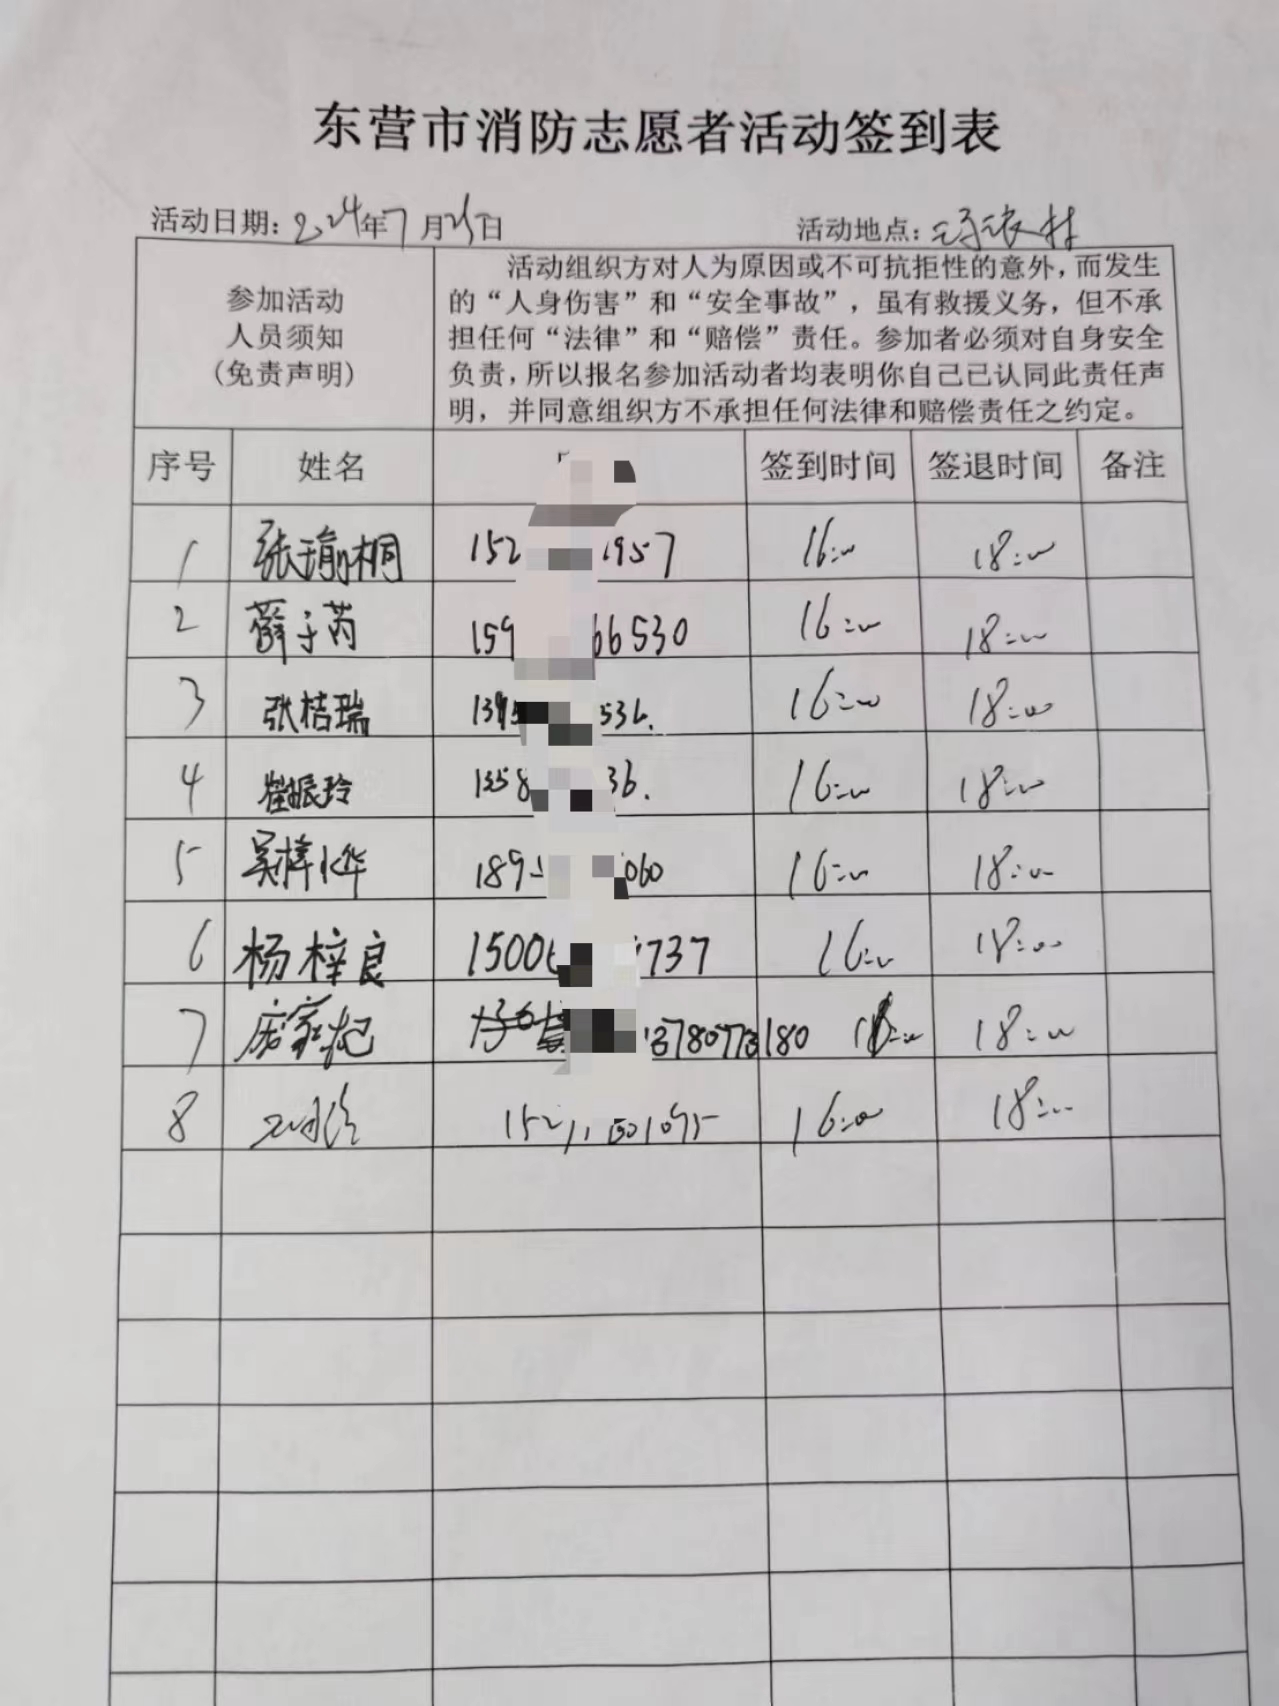 东营市消防志愿者活动签到表
活动日期: 2024年7月25日 活动地点:
参加活动
人员须知
(免责声明)
活动组织方对人为原因或不可抗拒性的意外，而发生
的“人身伤害”和“安全事故”，虽有救援义务，但不承
担任何“法律”和“赔偿”责任。参加者必须对自身安全
负责，所以报名参加活动者均表明你自己已认同此责任声
明，并同意组织方不承担任何法律和赔偿责任之约定。
序号 姓名 签到时间 签退时间 备注
1 张瑜桐 152 1957 16:00 18:00
2 薛子芮 159 66530 16:00 18:00
3 张桔瑞 1395 536. 16:00 18:00
4 崔振玲 1358 36. 16:00 18:00
5 吴梓烨 189 060 16:00 18:00
6 杨梓良 1500 737 16:00 18:00
7 13780773180 18:00
8 16:00 18:00